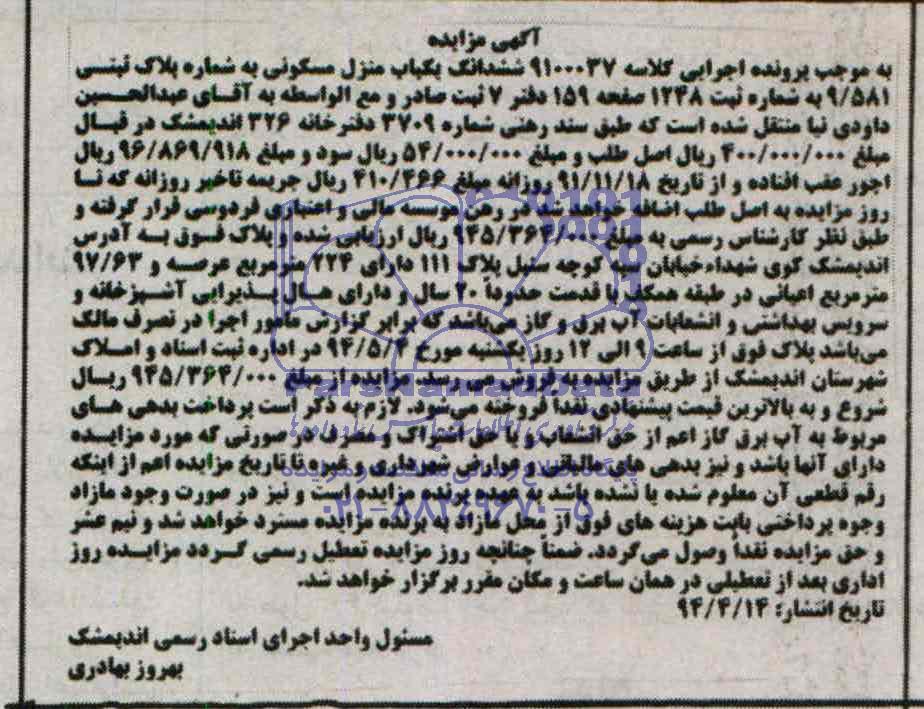 آگهی مزایده
به موجب پرونده اجرایی کلاسه ۹۱۰۰۰۳۷ ششدانگ یکباب منزل مسکونی به شماره پلاک ثبتی
۹/۵۸۱ به شماره ثبت ۱۲۴۸ صفحه ۱۵۹ دفتر ۷ ثبت صادر و مع الواسطه به آقای عبدالحسین
داودی نیا منتقل شده است که طبق سند رهنی شماره ۳۷۰۹ دفترخانه ۳۲۶ اندیمشک در قبال
مبلغ ۴۰۰/۰۰۰/۰۰۰ ریال اصل طلب و مبلغ ۵۴/۰۰۰/۰۰۰ ریال سود و مبلغ ۹۶/۸۶۹/۹۱۸ ریال
اجور عقب افتاده و از تاریخ ۹۱/۱۱/۱۸ روزانه مبلغ ۴۱۰/۴۶۶ ریال جریمه تاخیر روزانه که تا
روز مزایده به اصل طلب اضافه خواهد شد در رهن موسسه مالی و اعتباری فردوسی قرار گرفته و
طبق نظر کارشناس رسمی به مبلغ ۹۴۵/۳۶۴/۰۰۰ ریال ارزیابی شده و پلاک فوق به آدرس
اندیمشک کوی شهداء خیابان سپه کوچه سنبل پلاک ۱۱۱ دارای ۲۲۴ مترمربع عرصه و ۹۷/۶۳
مترمربع اعیانی در طبقه همکف با قدمت حدوداً ۲۰ سال و دارای هال پذیرایی آشپزخانه و
سرویس بهداشتی و انشعابات آب برق و گاز می‌باشد که برابر گزارش مامور اجرا در تصرف مالک
می‌باشد پلاک فوق از ساعت ۹ الی ۱۲ روز یکشنبه مورخ ۹۴/۵/۴ در اداره ثبت اسناد و املاک
شهرستان اندیمشک از طریق مزایده به فروش می رسد. مزایده از مبلغ ۹۴۵/۳۶۴/۰۰۰ ریال
شروع و به بالاترین قیمت پیشنهادی نقداً فروخته می‌شود. لازم به ذکر است پرداخت بدهی های
مربوط به آب برق گاز اعم از حق انشعاب و یا حق اشتراک و مصرف در صورتی که مورد مزایده
دارای آنها باشد و نیز بدهی های مالیاتی و عوارض شهرداری و غیره تا تاریخ مزایده اعم از اینکه
رقم قطعی آن معلوم شده یا نشده باشد به عهده برنده مزایده است و نیز در صورت وجود مازاد
وجوه پرداختی بابت هزینه های فوق از محل مازاد به برنده مزایده مسترد خواهد شد و نیم عشر
و حق مزایده نقداً وصول می‌گردد. ضمناً چنانچه روز مزایده تعطیل رسمی گردد مزایده روز
اداری بعد از تعطیلی در همان ساعت و مکان مقرر برگزار خواهد شد.
تاریخ انتشار: ۹۴/۴/۱۴
مسئول واحد اجرای اسناد رسمی اندیمشک
بهروز بهادری
ParsNamadData
۰۲۱-۸۸۳۴۹۶۷۰-۵